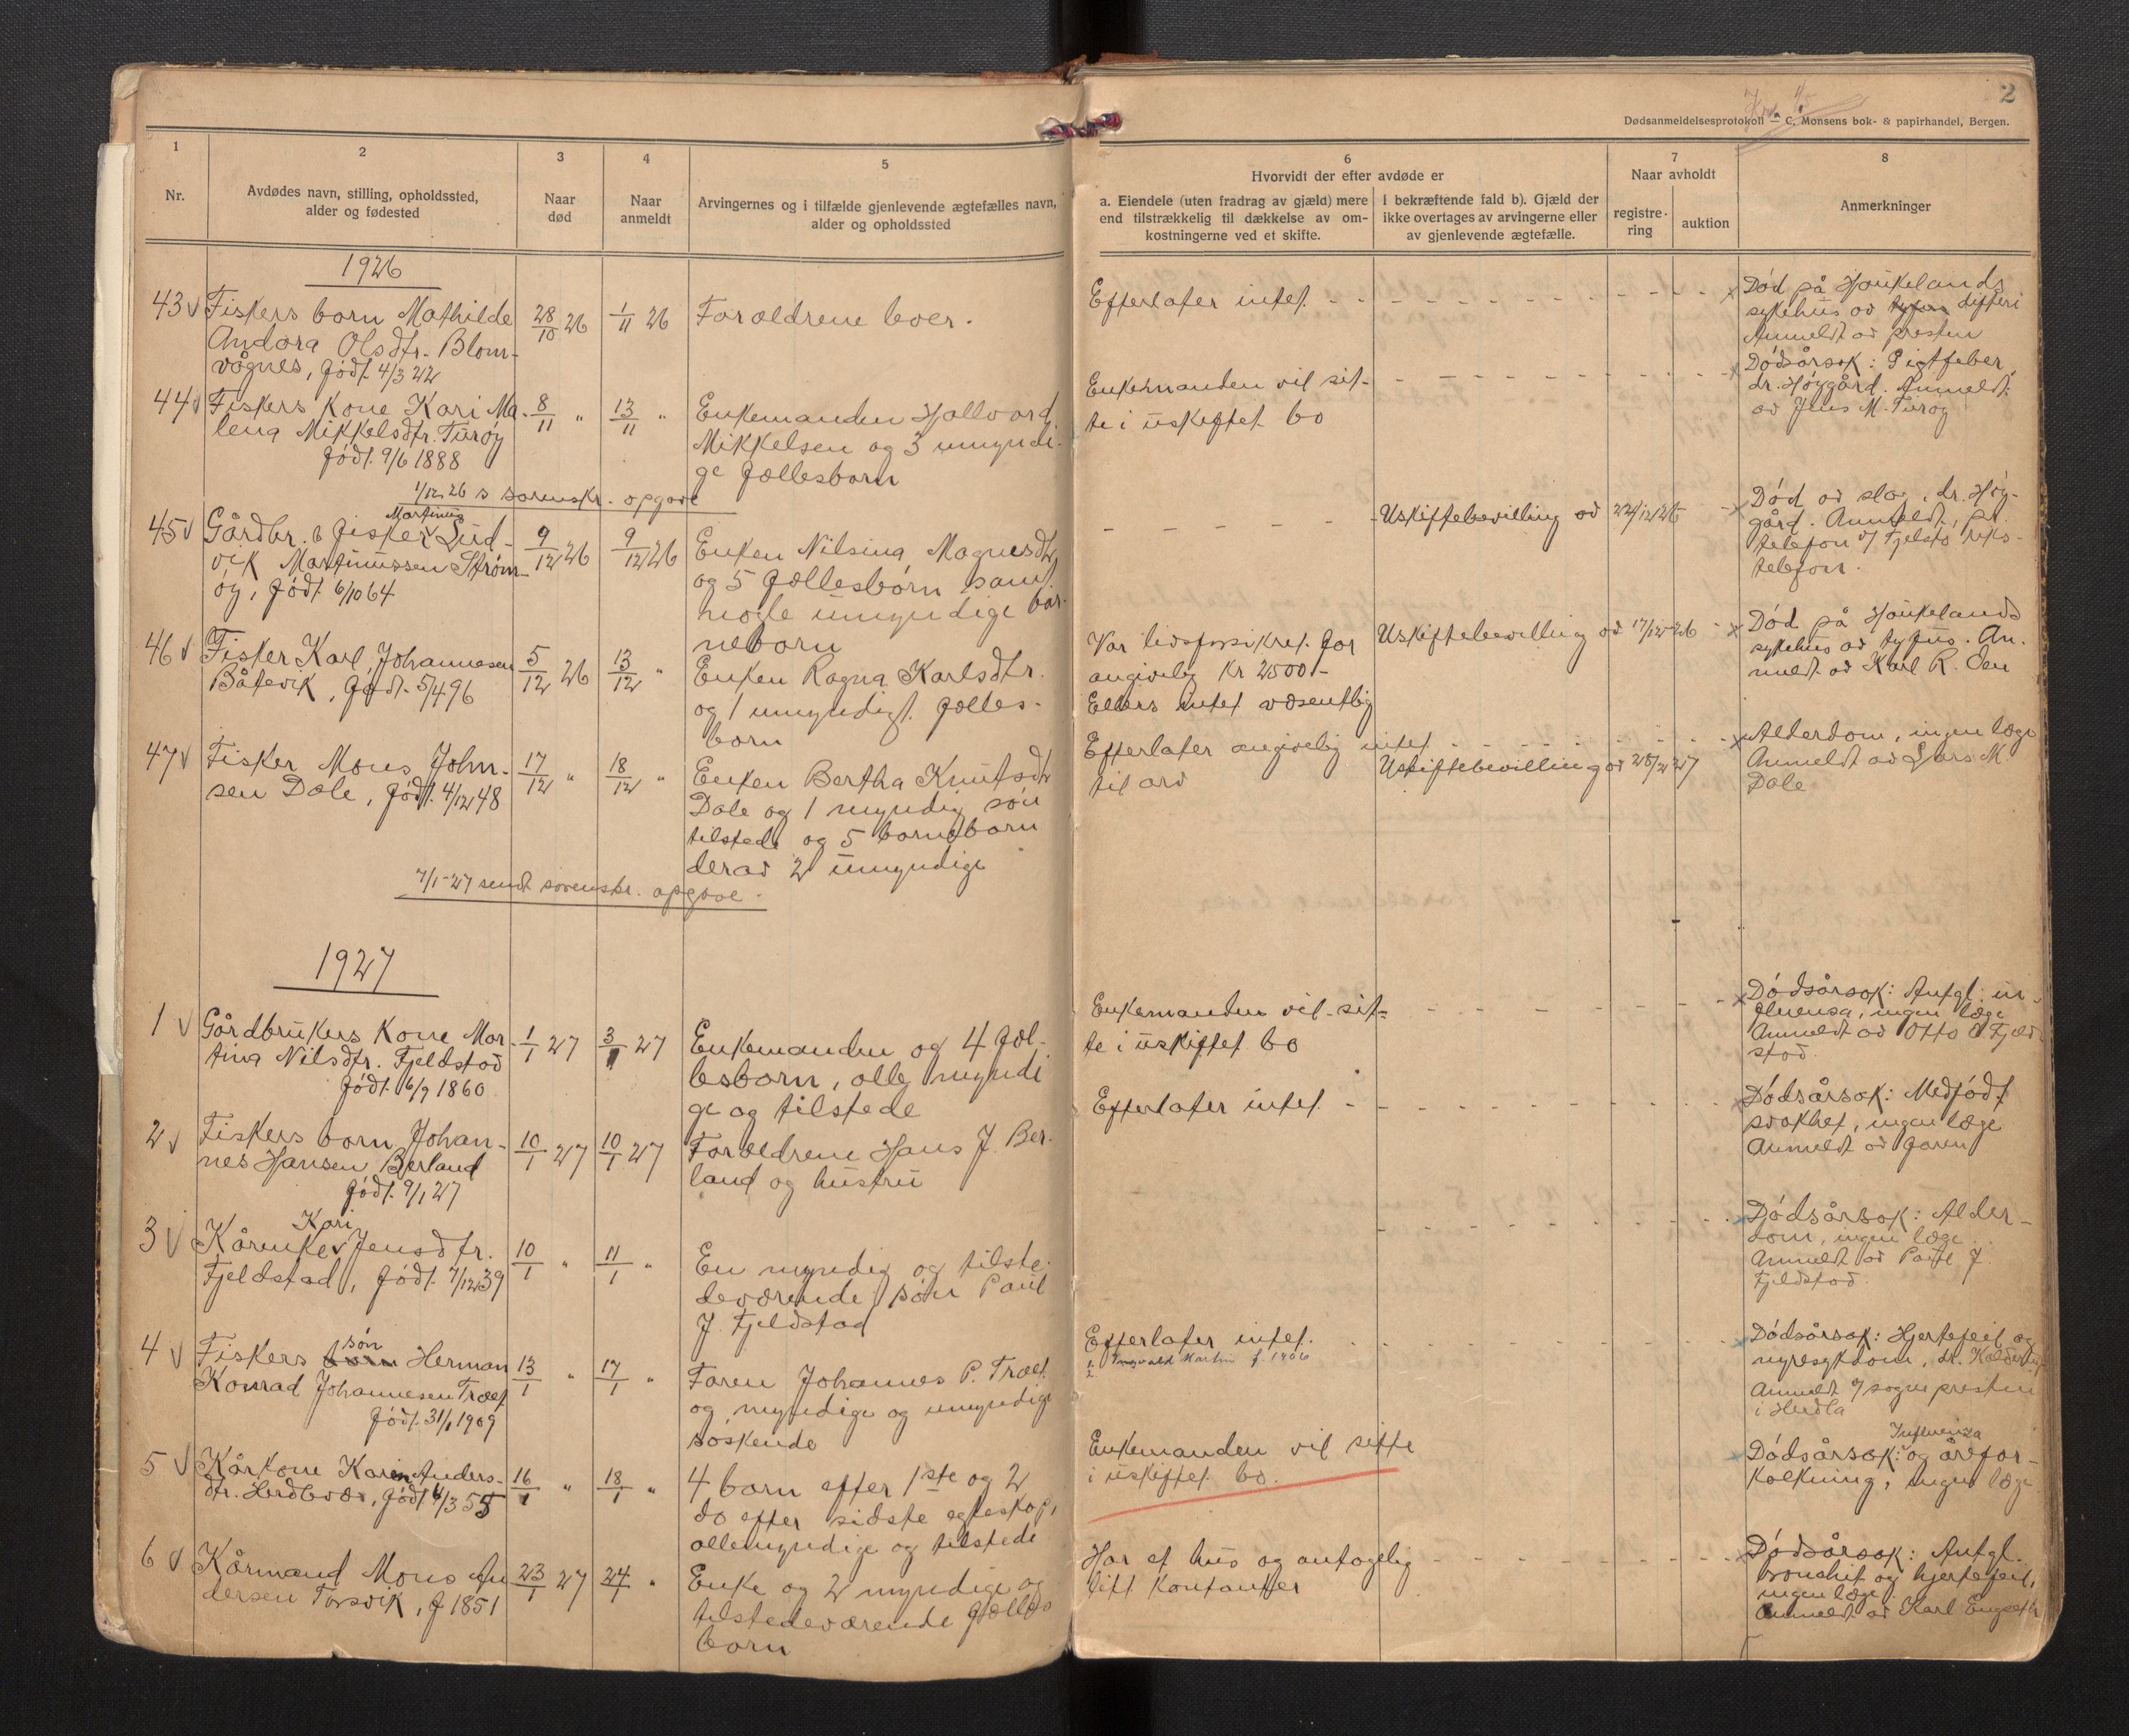 2
Dødsanmeldelsesprotokoll — C. Monsens bok- & papirhandel, Bergen.
1
Nr.
2
Avdødes navn, stilling, opholdssted,
alder og fødested
3
Naar
død
4
Naar
anmeldt
5
Arvingernes og i tilfælde gjenlevende ægtefælles navn,
alder og opholdssted
6
Hvorvidt der efter avdøde er
a. Eiendele (uten fradrag av gjæld) mere
end tilstrækkelig til dækkelse av om-
kostningerne ved et skifte.
I bekræftende fald b). Gjæld der
ikke overtages av arvingerne eller
av gjenlevende ægtefælle.
7
Naar avholdt
registre-
ring
auktion
8
Anmerkninger
1926
43 Fiskers barn Mathilde
Andora Olsdtr. Blom-
vågnes, født 4/3 22
28/10 26
1/11 26
Foraldrene lever.
Efterlater intet
Død på Haukelands
sykehus av tyfus difteri
Anmeldt av presten
44 Fiskers kone Kari Ma-
lena Mikkelsdtr. Turøy
født 9/6 1888
8/11 "
13/11 "
Enkemanden Hallvard
Mikkelsen og 3 umyndi-
ge fællesbarn
Enkemanden vil sit-
te i uskiftet bo
Dødsårsak: Gigtfeber,
dr. Høygård. Anmeldt
av Jens M. Turøy
1/12 26 s sorenskr. opgave
45 Gårdbr. & fisker Lud-
Martinus
vik Martinussen Strøm-
øy, født 6/10 64
9/12 26
9/12 26
Enken Nilsina Magnesdtr
og 5 fællesbørn samt
nogle umyndige bar-
nebarn
Uskiftebevilling av 22/12 26
Død av slag, dr. Høy-
gård. Anmeldt, pr.
telefon v/ Fjelstø riks-
telefon.
46 Fisker Karl Johannesen
Båtevik, født 5/4 96
5/12 26
13/12 "
Enken Ragna Karlsdtr.
og 1 umyndigt fælles-
barn
Var livsforsikret for
angivelig kr 2500-
Ellers intet væsentlig
Uskiftebevilling av 17/12-26
Død på Haukelands
sykehus av tyfus. An-
meldt av Karl R. Oen
47 Fisker Mons John-
sen Dale, født 4/12 48
17/12 "
18/12 "
Enken Bertha Knutsdtr
Dale og 1 myndig søn
tilstede og 5 barnebarn
derav 2 umyndige
Efterlater angivelig intet
til arv
Uskiftebevilling av 28/2 27
Alderdom, ingen læge
Anmeldt av Lars M.
Dale
7/1-27 sendt sorenskr. opgave.
1927
1 Gårdbrukers kone Mar-
tina Nilsdtr. Fjeldstad
født 16/9 1860
1/1 27
3/1 27
Enkemanden og 4 fæl-
lesbarn, alle myndi
ge og tilstede
Enkemanden vil sit-
te i uskiftet bo
Dødsårsak: Antgl. in-
fluensa, ingen læge
Anmeldt av Otto O. Fjeld-
stad.
2 Fiskers barn Johan-
nes Hansen Berland
født 9/1 27
10/1 27
10/1 27
Foraldrene Hans J. Ber-
land og hustru
Efterlater intet
Dødsårsak: Medfødt
svakhet, ingen læge
Anmeldt av faren
3 Kari
Kårenke Jensdtr.
Fjeldstad, født 7/12 39
10/1 "
11/1 "
En myndig og tilste-
deværende søn Paul
J. Fjeldstad
Dødsårsak: Alder-
dom, ingen læge
Anmeldt av Paul J.
Fjeldstad.
4 Fiskers søn Herman
Konrad Johannesen Træet
født 31/1 1909
13/1 "
17/1 "
Faren Johannes P. Træet
og myndige og umyndige
søskende
Efterlater intet.
1. Ingvald Martin f. 1906
2.
Dødsårsak: Hjertefeil og
nyresykdom, dr.
Anmeldt v/ sognepresten
i Herdla
5 Kårkone Karen Anders-
dtr. Herdlevær, født 4/3 55
16/1 "
18/1 "
4 barn efter 1ste og 2
do efter sidste egteskap,
alle myndige og tilstede
Enkemanden vil sitte
i uskiftet bo.
Influenza
Dødsårsak: og årefor-
kalkning, ingen læge
6 Kårmand Mons An
dersen Torsvik, f 1851
23/1 27
24/1 "
Enke og 2 myndige og
tilstedeværende fælles
barn
Har et hus og antagelig
litt kontanter
Dødsårsak: Antgl.
bronchit og hjertefeil,
ingen læge
Anmeldt av Karl Engseth